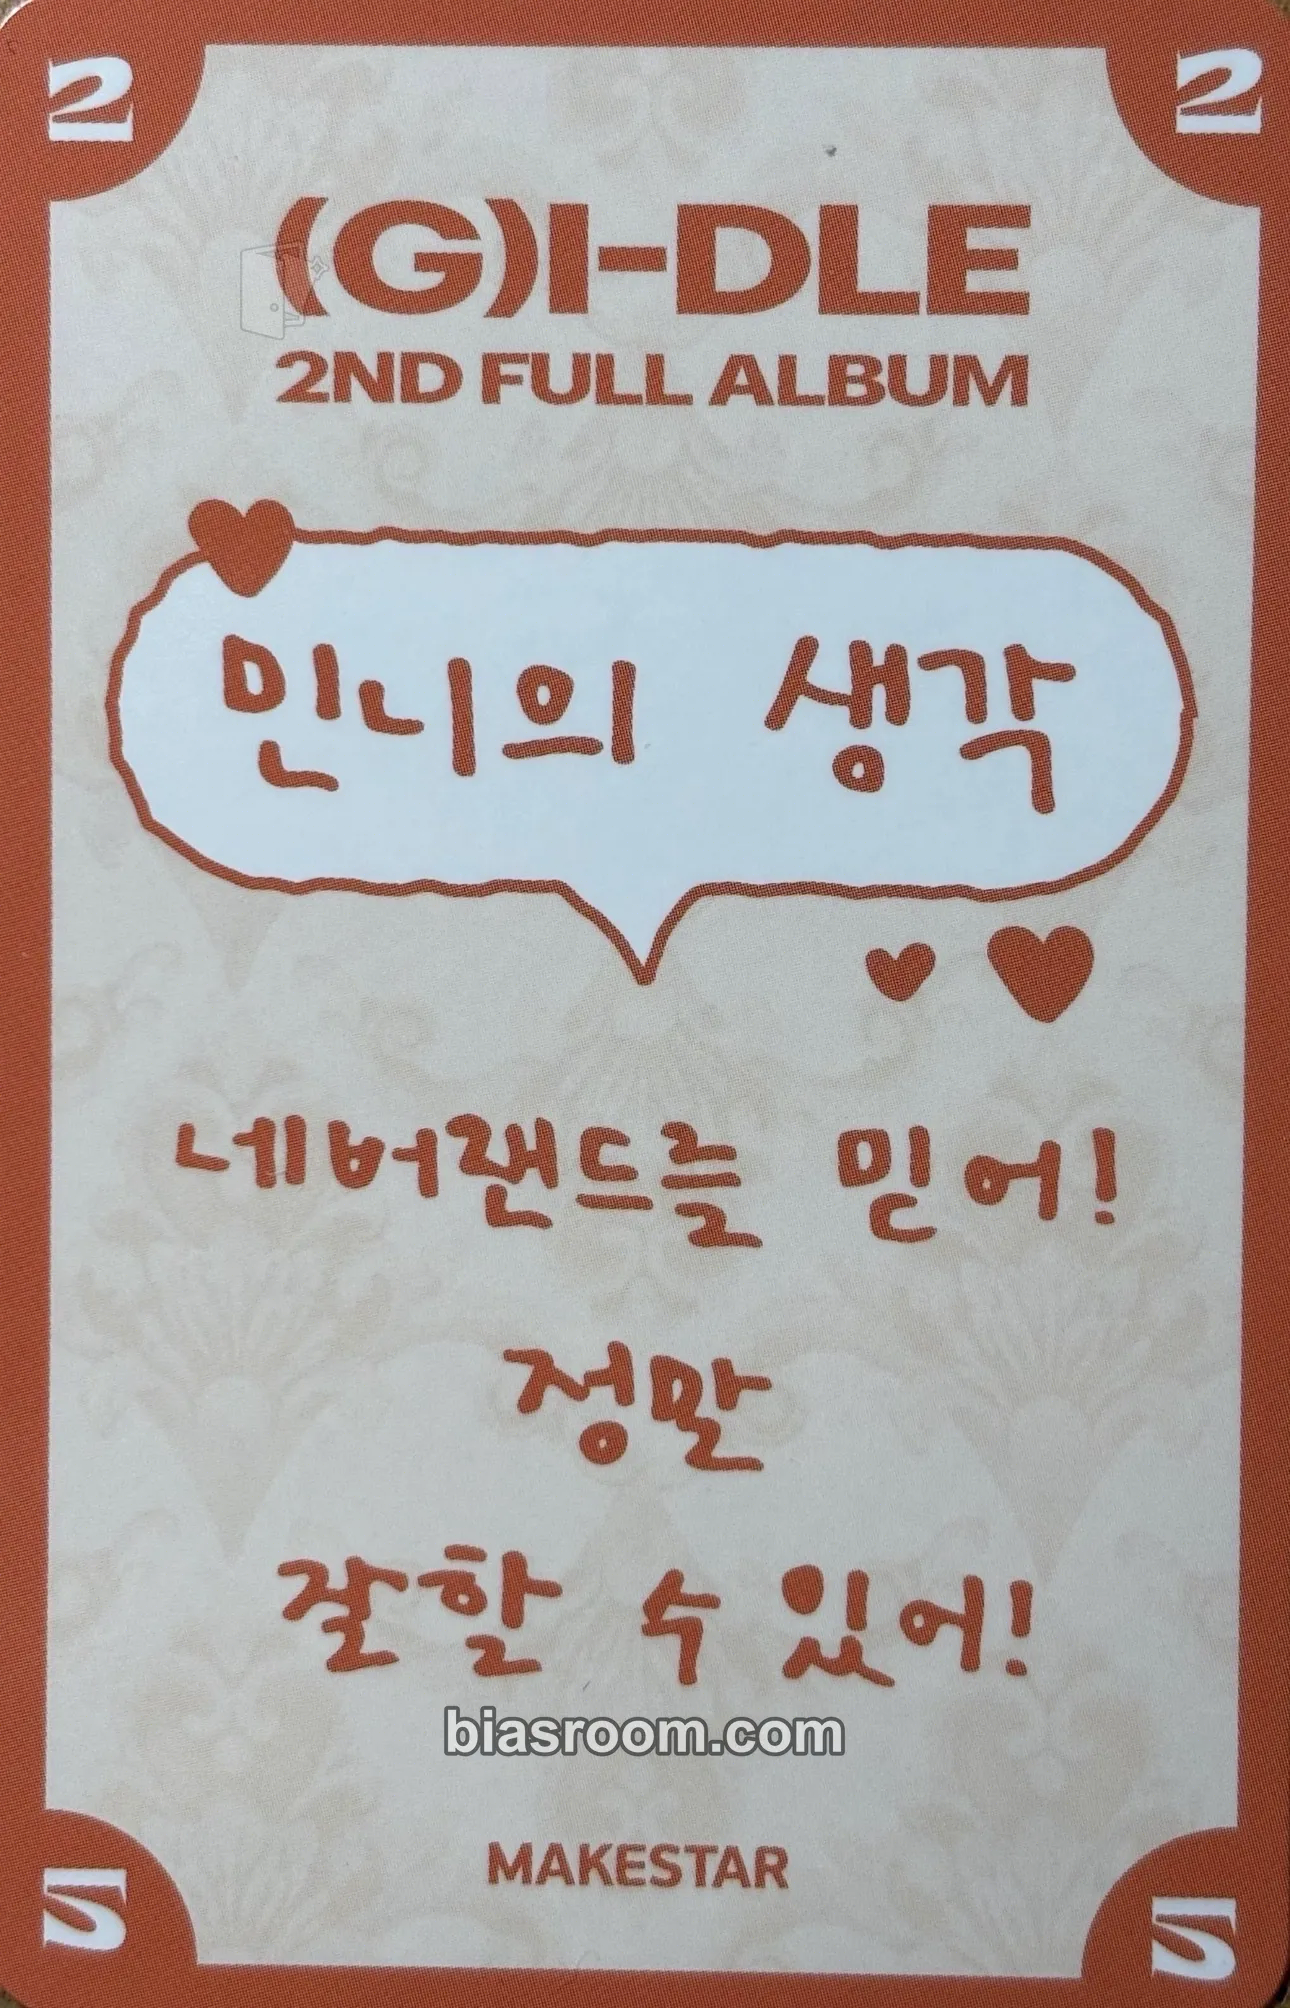 2 2
(G)I-DLE
2ND FULL ALBUM
민니의 생각
네버랜드를 믿어!
정말
잘할 수 있어!
biasroom.com
MAKESTAR
2 2